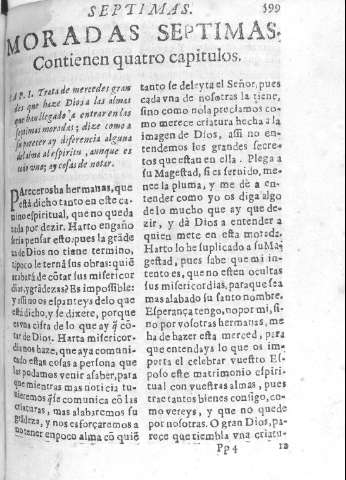 SEPTIMAS. 599
MORADAS SEPTIMAS.
Contienen quatro capitulos.
CAP. I. Trata de mercedes gran
des que haze Dios a las almas
que han llegado a entrar en las
septimas moradas; dize como a
su parecer ay diferencia alguna
del alma al espiritu, aunque es
todo uno; ay cosas de notar.
PArecerosha hermanas, que
está dicho tanto en este ca
mino espiritual, que no queda
nada por dezir. Harto engaño
seria pensar esto; pues la grãde
za de Dios no tiene termino,
tãpoco le ternã sus obras: quiẽ
acabará de cõtar sus misericor
dias, y grãdezas? Es impossible:
y assi no os espanteys de lo que
está dicho, y se dixere, porque
es vna cifra de lo que ay q̃ cõ-
tar de Dios. Harta misericor-
dia nos haze, que aya comuni-
cado estas cosas a persona que
las podamos venir a saber, para
que mientras mas noticia tu-
uieremos q̃ se comunica cõ las
criaturas, mas alabaremos su
grãdeza, y nos esforçaremos a
no tener en poco alma cõ quiẽ
tanto se deleyta el Señor, pues
cada vna de nosotras la tiene,
sino como no la preciamos co-
mo merece criatura hecha a la
imagen de Dios, assi no en-
tendemos los grandes secre-
tos que estan en ella. Plega a
su Magestad, si es seruido, me-
nee la pluma, y me dé a en-
tender como yo os diga algo
de lo mucho que ay que de-
zir, y dà Dios a entender a
quien mete en esta morada.
Harto lo he suplicado a su Ma-
gestad, pues sabe que mi in-
tento es, que no esten ocultas
sus misericordias, para que sea
mas alabado su santo nombre.
Esperança tengo, no por mi, si-
no por vosotras hermanas, me
ha de hazer esta merced, para
que entendays lo que os im-
porta el celebrar vuestro Es-
poso este matrimonio espiri-
tual con vuestras almas, pues
trae tantos bienes consigo, co-
mo vereys, y que no quede
por nosotras. O gran Dios, pa-
rece que tiembla vna criatu-
Pp 4 ra